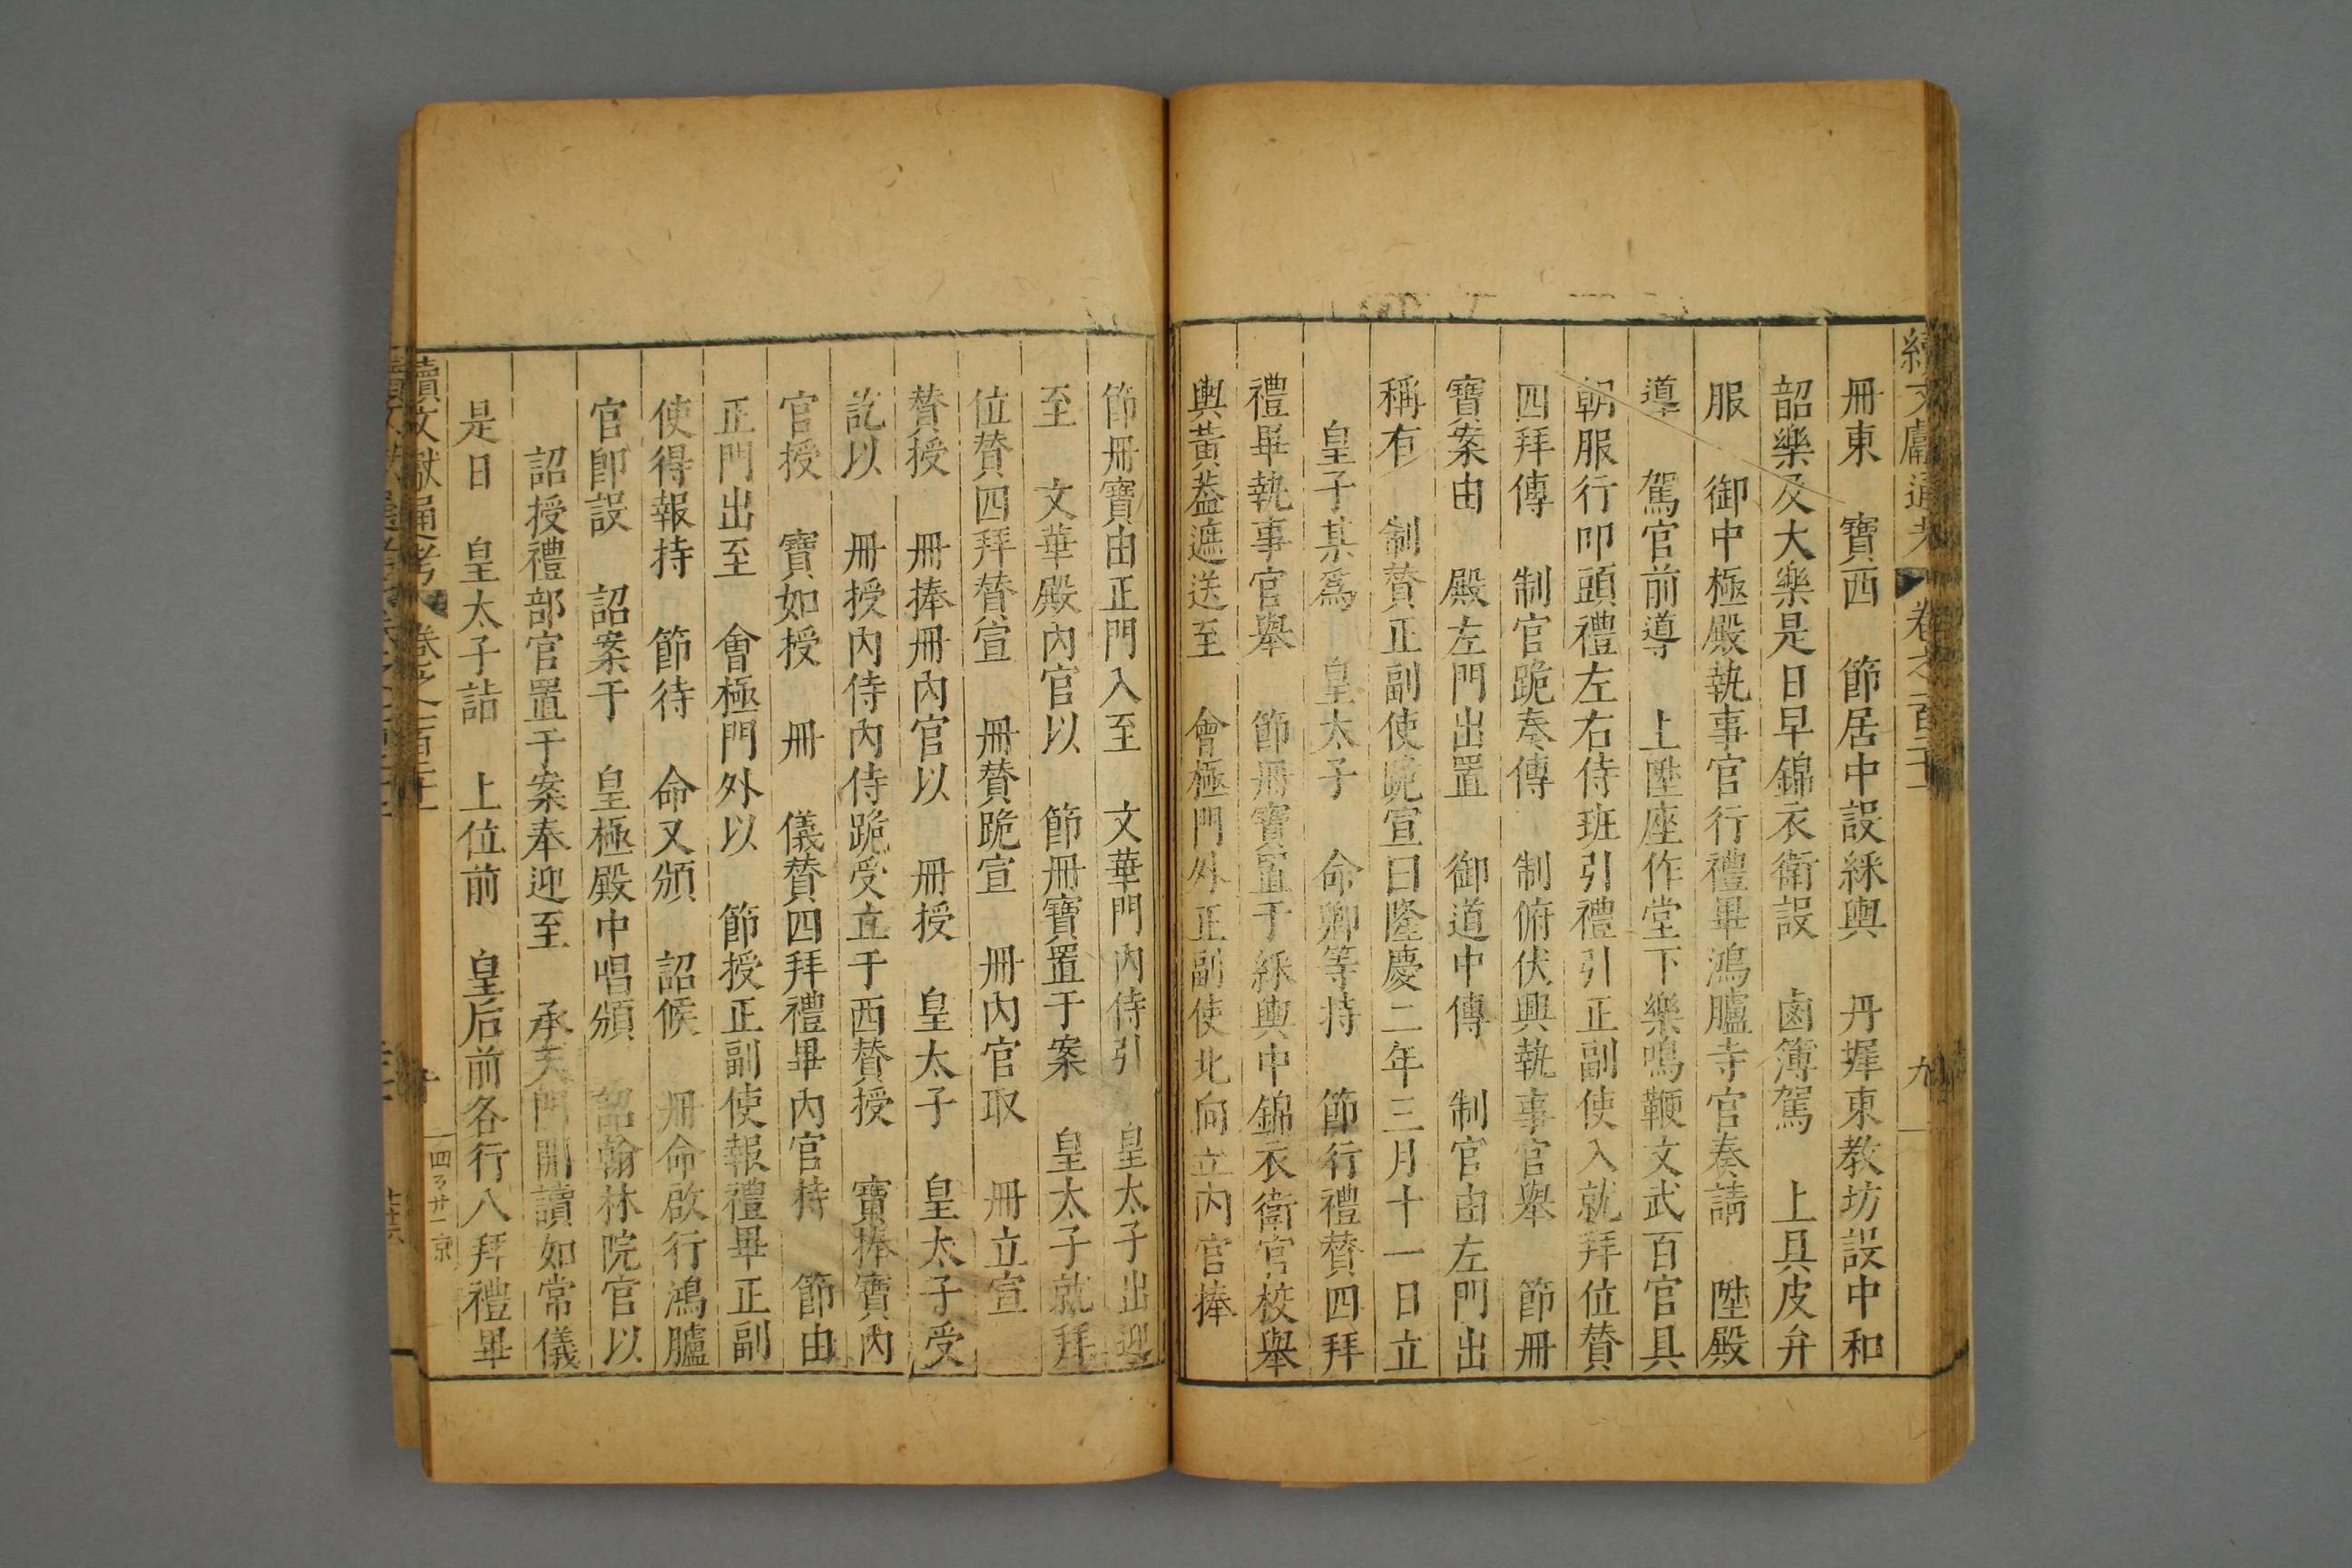 續文獻通考 卷之一百二十 九
冊東 寶西 節居中設綵輿 丹墀東教坊設中和
韶樂及大樂是日早錦衣衛設 鹵簿駕 上具皮弁
服 御中極殿執事官行禮畢鴻臚寺官奏請 陞殿
導 駕官前導 上陞座作堂下樂鳴鞭文武百官具
朝服行叩頭禮左右侍班引禮引正副使入就拜位贊
四拜傳 制官跪奏傳 制俯伏興執事官舉 節冊
寶案由 殿左門出置 御道中傳 制官由左門出
稱有 制贊正副使跪宣曰隆慶二年三月十一日立
皇子某為 皇太子 命卿等持 節行禮贊四拜
禮畢執事官舉 節冊寶置于綵輿中錦衣衛官校舉
輿黃葢遮送至 會極門外正副使北向立內官捧
節冊寶由正門入至 文華門內侍引 皇太子出迎
至 文華殿內官以 節冊寶置于案 皇太子就拜
位贊四拜贊宣 冊贊跪宣 冊內官取 冊立宣
贊授 冊捧冊內官以 冊授 皇太子 皇太子受
訖以 冊授內侍內侍跪受立于西贊授 寶捧寶內
官授 寶如授 冊 儀贊四拜禮畢內官持 節由
正門出至 會極門外以 節授正副使報禮畢正副
使得報持 節待 命又頒 詔候 冊命啟行鴻臚
官卽設 詔案于 皇極殿中唱頒 詔翰林院官以
詔授禮部官置于案奉迎至 承天門開讀如常儀
是日 皇太子詣 上位前 皇后前各行八拜禮畢
續文獻通考 卷之一百二十 十